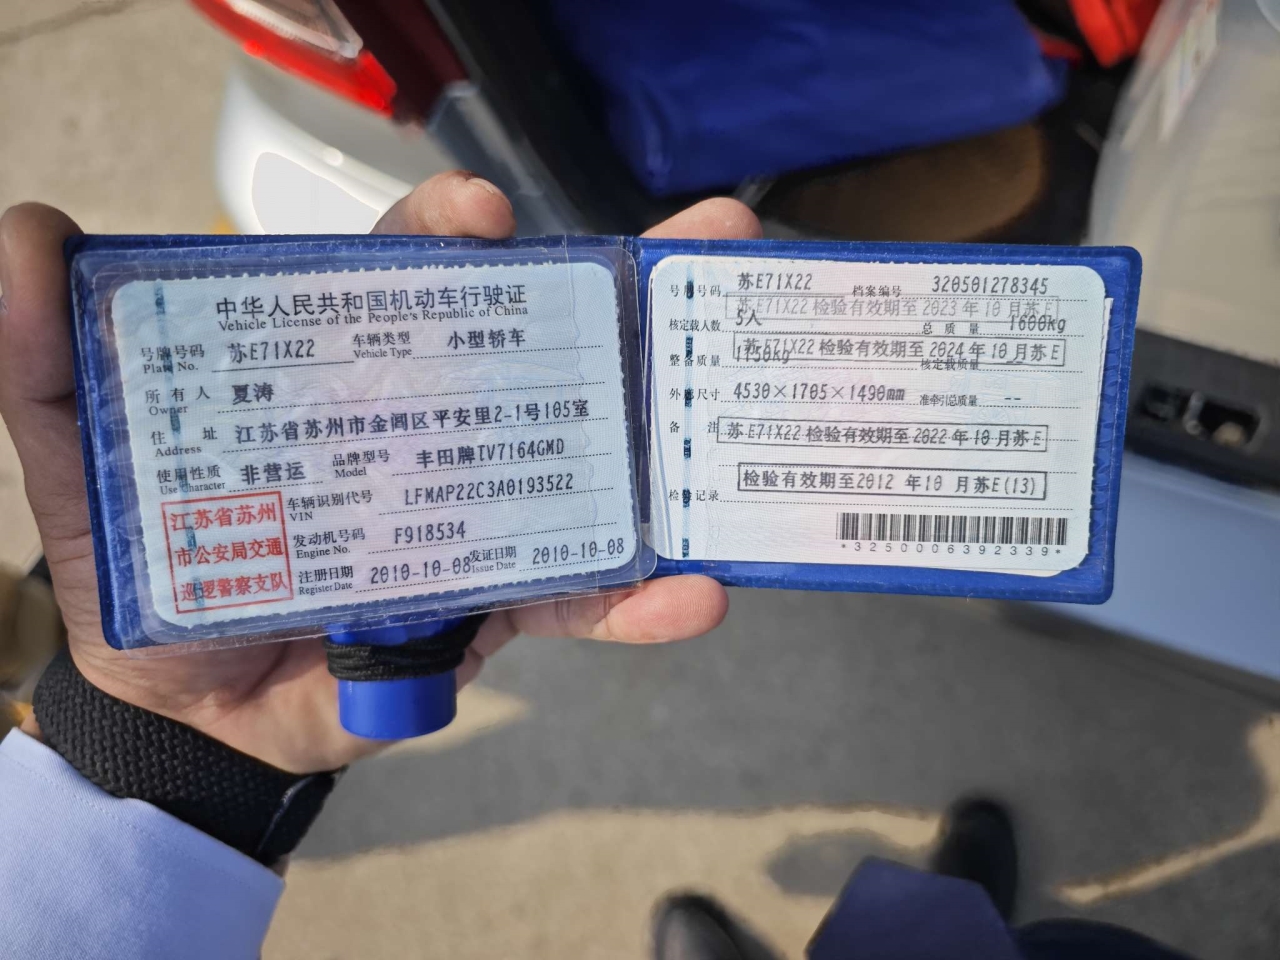 中华人民共和国机动车行驶证
Vehicle License of the People's Republic of China
号牌号码 苏E71X22 车辆类型 小型轿车
Plate No. Vehicle Type
所有人 夏涛
Owner
住址 江苏省苏州市金阊区平安里2-1号105室
Address
使用性质 非营运 品牌型号 丰田牌TV7164GMD
Use Character Model
车辆识别代号 LFMAP22C3A0193522
VIN
发动机号码 F918534
Engine No.
注册日期 2010-10-08 发证日期 2010-10-08
Register Date Issue Date
江苏省苏州
市公安局交通
巡逻警察支队
号牌号码 苏E71X22 档案编号 320501278345
苏E71X22 检验有效期至 2023 年 10 月苏E
核定载人数 5人 总质量 1600kg
苏E71X22 检验有效期至 2024 年 10 月苏E
整备质量 1150kg 核定载质量
外廓尺寸 4530×1705×1490mm 准牵引总质量 --
备注 苏E71X22 检验有效期至 2022 年 10 月苏E
检验有效期至2012 年10 月苏E(13)
检验记录
*3250006392339*